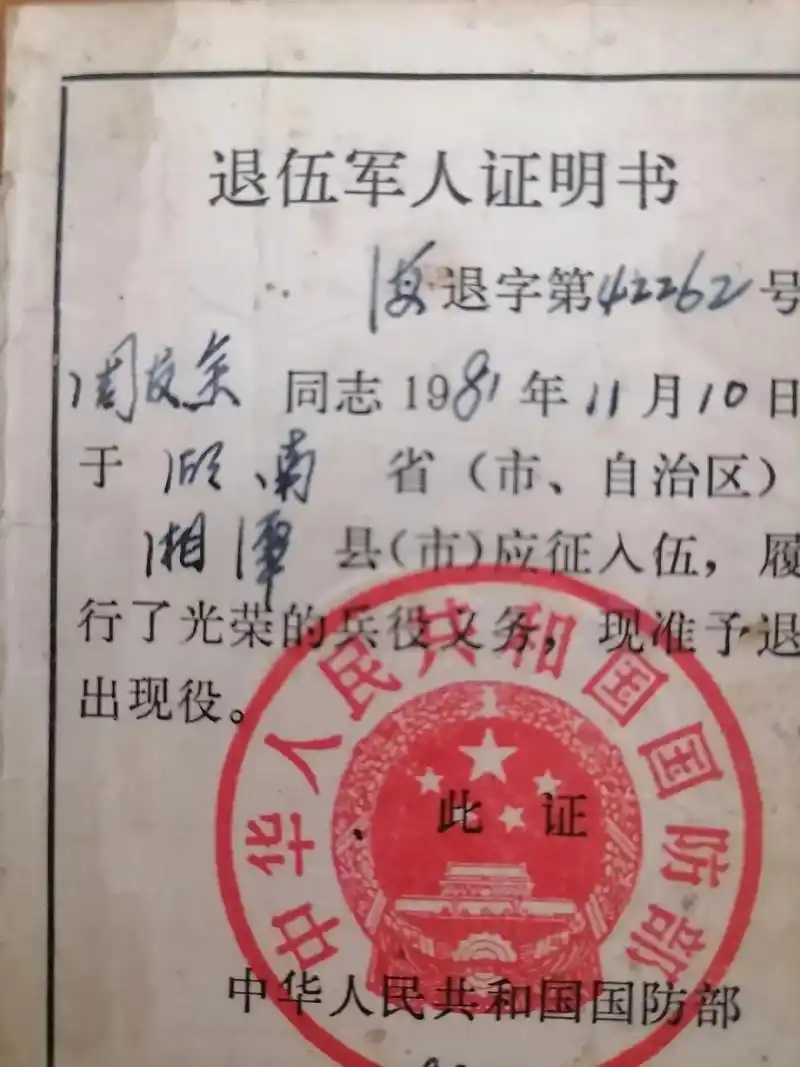 退伍军人证明书
海退字第42262号
同志1981年11月10日
于湖南省（市、自治区）
湘潭县(市)应征入伍，履
行了光荣的兵役义务，现准予退
出现役。
此证
中华人民共和国国防部
中华人民共和国国防部